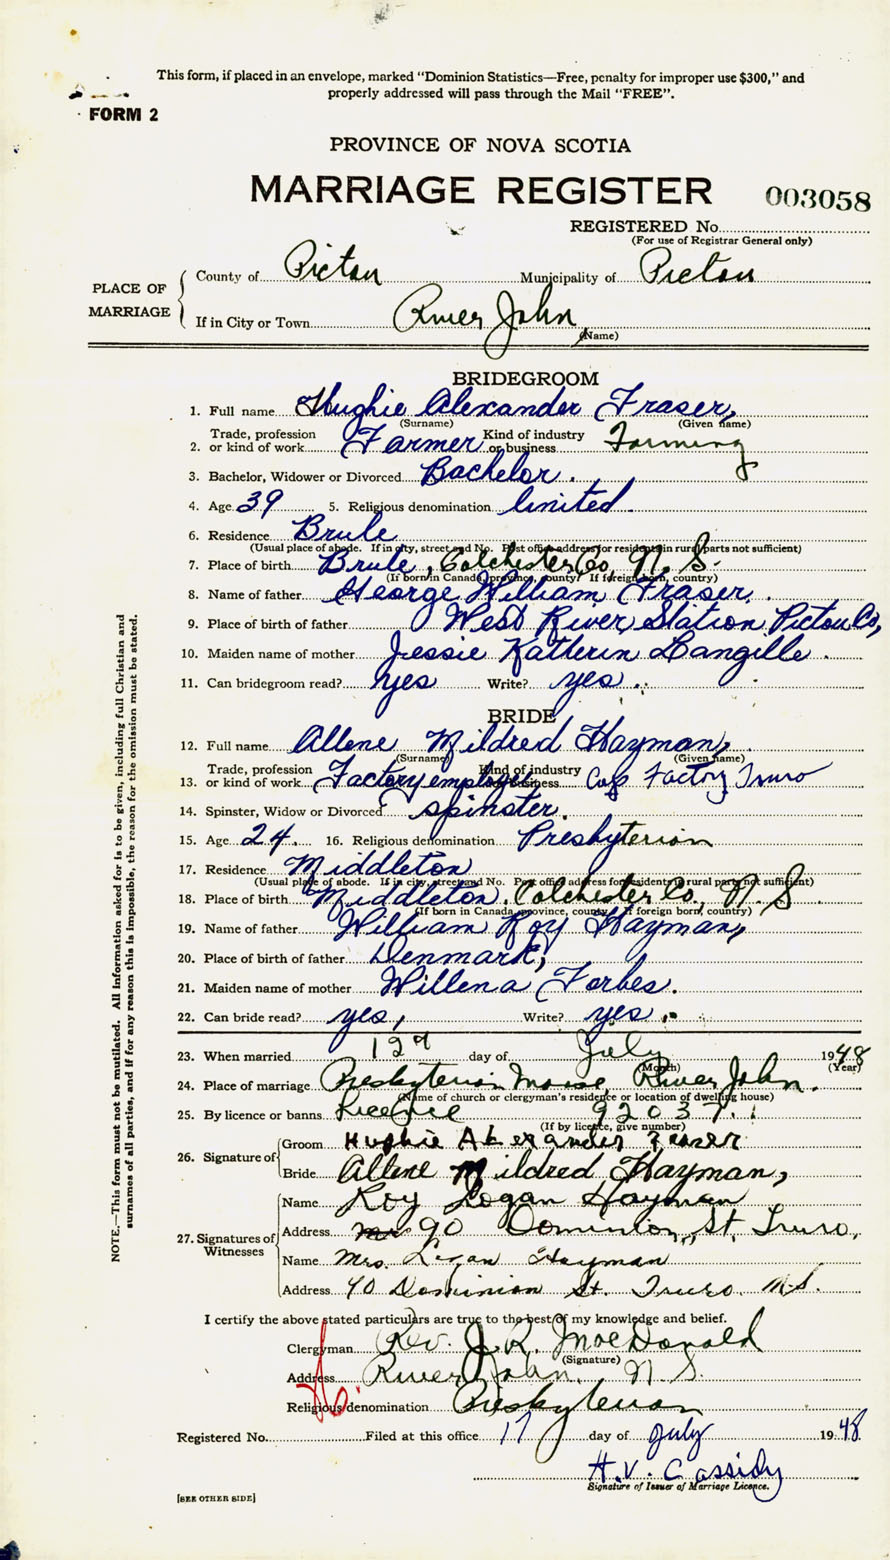 This form, if placed in an envelope, marked "Dominion Statistics—Free, penalty for improper use $300," and
properly addressed will pass through the Mail "FREE".
FORM 2
PROVINCE OF NOVA SCOTIA
MARRIAGE REGISTER 003058
REGISTERED No.
(For use of Registrar General only)
PLACE OF MARRIAGE
County of Pictou Municipality of Pictou
If in City or Town River John
(Name)
BRIDEGROOM
1. Full name Hughie Alexander Fraser,
(Surname) (Given name)
2. Trade, profession or kind of work Farmer Kind of industry or business Farming
3. Bachelor, Widower or Divorced Bachelor.
4. Age 39 5. Religious denomination United.
6. Residence Brule
(Usual place of abode. If in city, street and No. Post office address for residents in rural parts not sufficient)
7. Place of birth Brule, Colchester Co, N. S.
(If born in Canada, province, county. If foreign born, country)
8. Name of father George William Fraser.
9. Place of birth of father West River Station, Pictou Co,
10. Maiden name of mother Jessie Katherin Langille.
11. Can bridegroom read? yes Write? yes.
BRIDE
12. Full name Allene Mildred Hayman,
(Surname) (Given name)
13. Trade, profession or kind of work Factory employee Kind of industry or business Cap Factory Truro
14. Spinster, Widow or Divorced spinster.
15. Age 24. 16. Religious denomination Presbyterian
17. Residence Middleton
(Usual place of abode. If in city, street and No. Post office address for residents in rural parts not sufficient)
18. Place of birth Middleton, Colchester Co., N. S.
(If born in Canada, province, county. If foreign born, country)
19. Name of father William Roy Hayman,
20. Place of birth of father Denmark,
21. Maiden name of mother Willena Forbes.
22. Can bride read? yes, Write? yes.
23. When married 12th day of July 1948
(Month) (Year)
24. Place of marriage Presbyterian Manse, River John.
(Name of church or clergyman's residence or location of dwelling house)
25. By licence or banns Licence 92037.
(If by licence, give number)
26. Signature of
Groom Hughie Alexander Fraser
Bride Allene Mildred Hayman,
27. Signatures of Witnesses
Name Roy Logan Hayman
Address 90 Dominion, St, Truro,
Name Mrs. Logan Hayman
Address 90 Dominion St. Truro. N.S.
I certify the above stated particulars are true to the best of my knowledge and belief.
Clergyman Rev. J. R. MacDonald
(Signature)
Address River John, N. S.
Religious denomination Presbyterian
Registered No. Filed at this office 17 day of July 1948
H.V. Cassidy
Signature of Issuer of Marriage Licence.
[SEE OTHER SIDE]
NOTE.—This form must not be mutilated. All information asked for is to be given, including full Christian and
surnames of all parties, and if for any reason this is impossible, the reason for the omission must be stated.